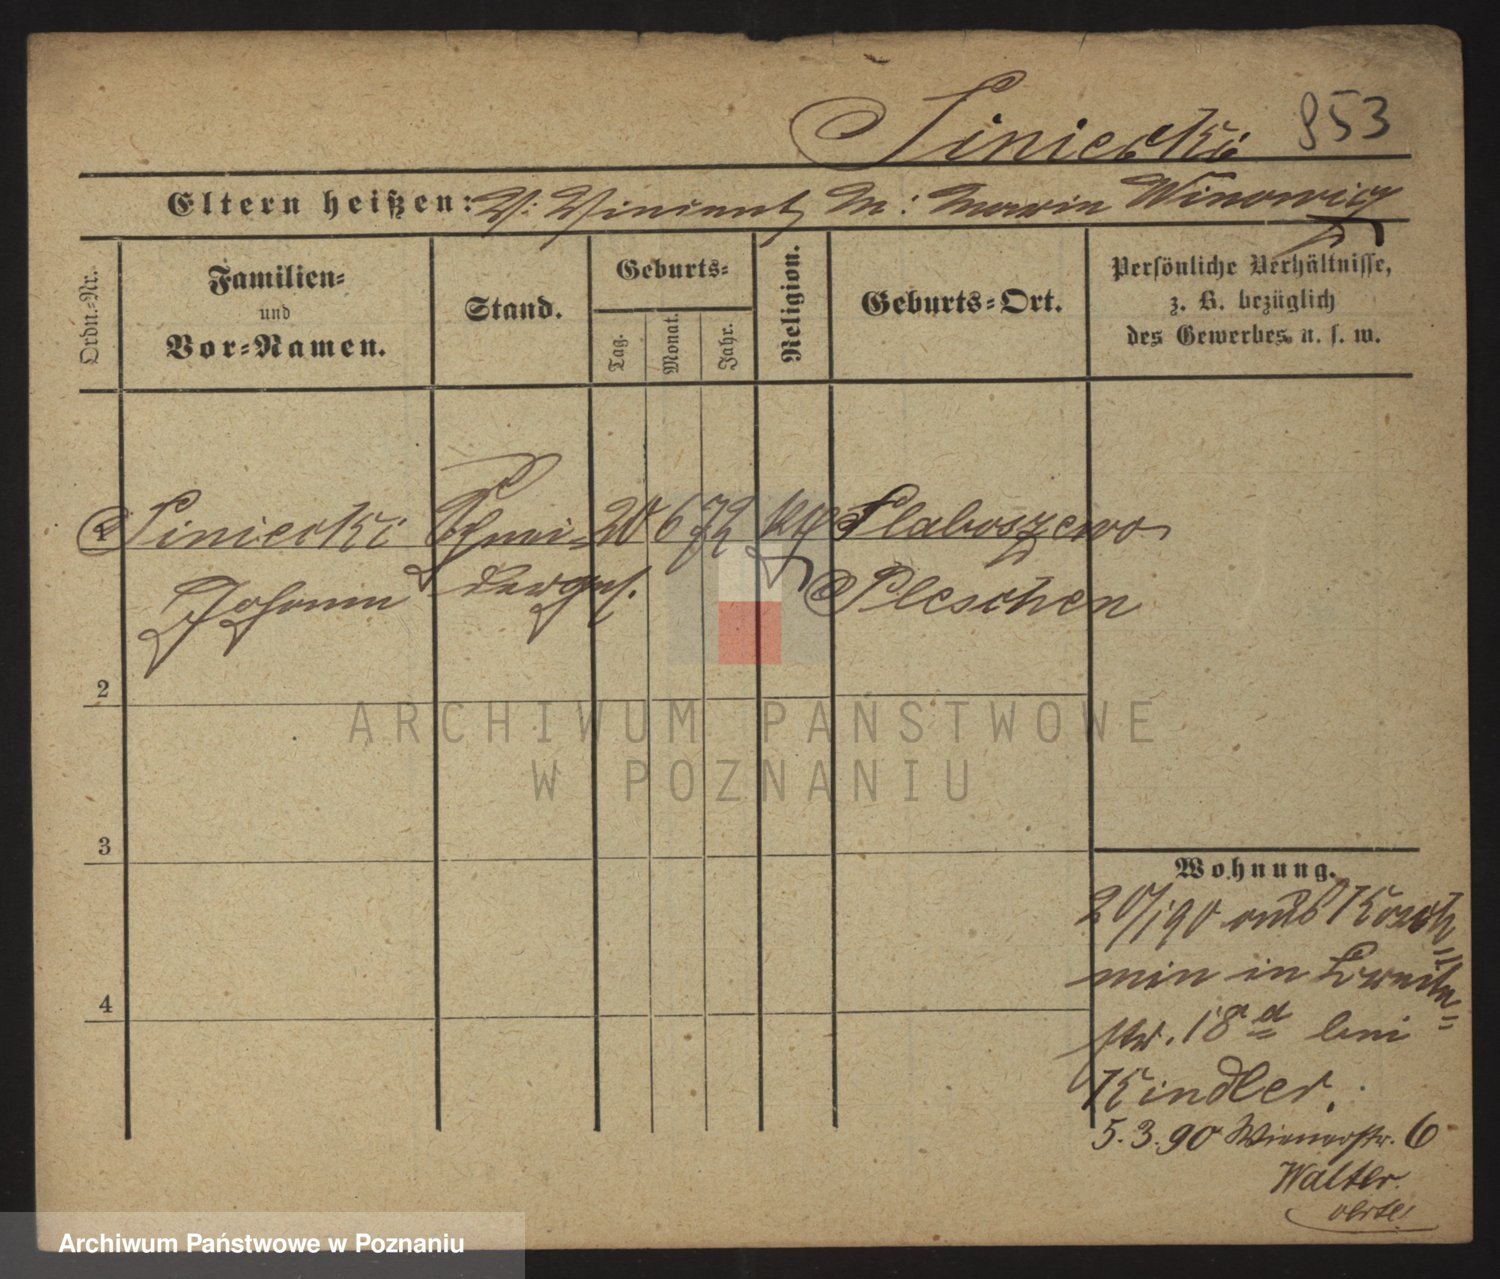 Siniecki 853
Eltern heißen: V: Vincent M: Maria Winowicz
Ordn.-Nr.
Familien-
und
Vor-Namen.
Stand.
Geburts-
Tag.
Monat.
Jahr.
Religion.
Geburts-Ort.
Persönliche Verhältnisse,
z. B. bezüglich
des Gewerbes u. s. w.
1 Siniecki Schnei- 20 6 72 kth Slaboszewo
Johann derges. Pleschen
2
3
4
Wohnung.
20/1 90 aus Kosch-
min in Breite-
str. 18a bei
Kindler.
5.3.90 Wienerstr. 6
Walter
ARCHIWUM PAŃSTWOWE
W POZNANIU
Archiwum Państwowe w Poznaniu